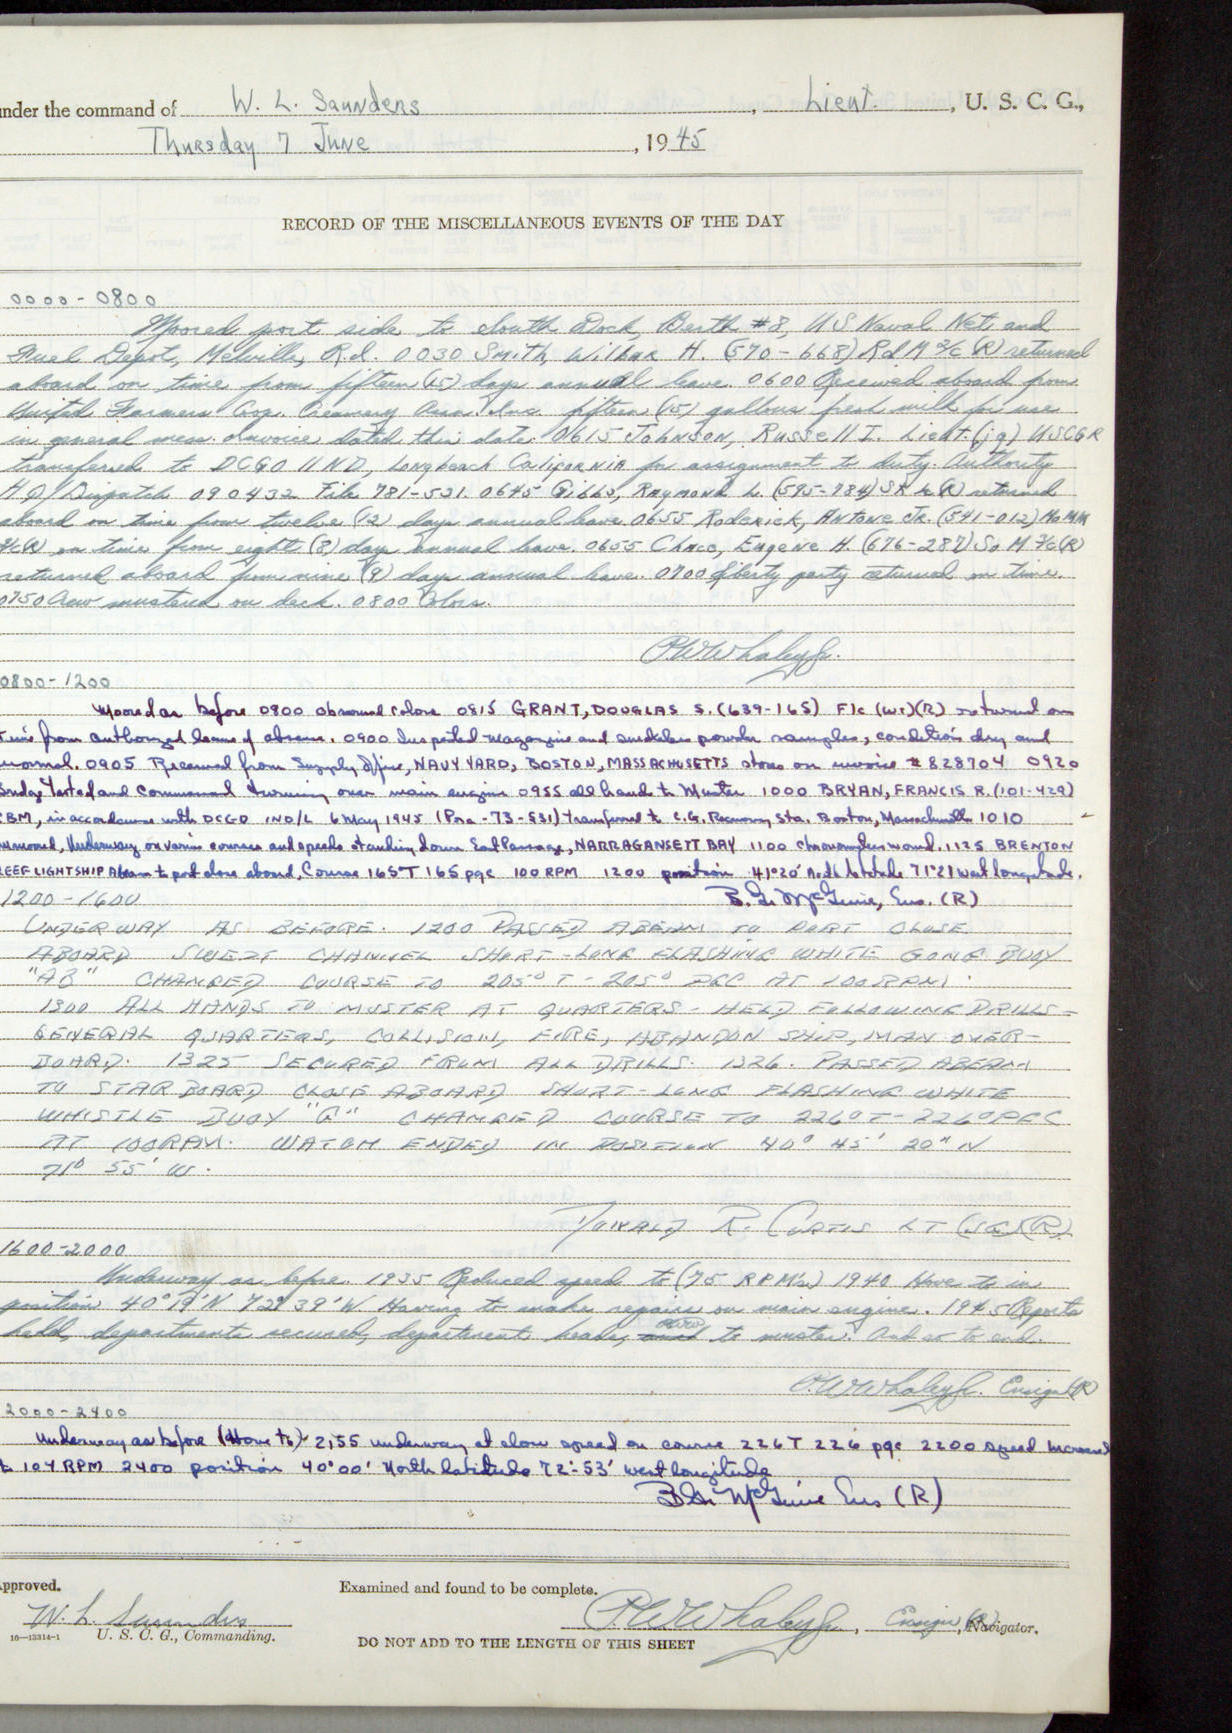 under the command of W. L. Saunders, Lieut., U. S. C. G.,
Thursday 7 June, 1945
RECORD OF THE MISCELLANEOUS EVENTS OF THE DAY
0000-0800
Moored port side to South Dock, Berth #8, US Naval Net and
Fuel Depot, Melville, R.I. 0030 Smith, Wilbur H. (570-668) RdM 3/c (R) returned
aboard on time from fifteen (15) days annual leave. 0600 Received aboard from
United Farmers Coop. Creamery Assn. Inc. fifteen (15) gallons fresh milk for use
in general mess. Invoice dated this date. 0615 Johnson, Russell I. Lieut. (jg) USCGR
transferred to DCGO 11ND, Longbeach California for assignment to duty. Authority
HQ Dispatch 090432 File 781-531. 0645 Gibbs, Raymond L. (595-784) SK (R) returned
aboard on time from twelve (12) days annual leave. 0655 Roderick, Antone Jr. (541-012) MoMM
(R) on time from eight (8) day annual leave. 0655 Chaco, Eugene H. (676-287) SoM 3/c (R)
returned aboard from nine (9) days annual leave. 0700 Liberty party returned on time.
0750 Crew mustered on deck. 0800 Colors.
P.W. Whaley Jr.
0800-1200
Moored as before 0800 observed colors 0815 GRANT, DOUGLAS S. (639-165) F1c (WT)(R) returned on
time from authorized leave of absence. 0900 Inspected magazine and smokeless powder samples, condition dry and
normal. 0905 Received from Supply Office, NAVY YARD, BOSTON, MASSACHUSETTS stores on invoice # 828704 0920
Bridge tested and commenced turning over main engine 0955 all hands to Muster 1000 BRYAN, FRANCIS R. (101-429)
CBM, in accordance with DCGO 1ND/L 6 May 1945 (Pora-73-531) transferred to C.G. Recovery Sta. Boston, Massachusetts 1010
unmoored, Underway on various courses and speeds standing down East Passage, NARRAGANSETT BAY 1100 chronometers wound. 1125 BRENTON
REEF LIGHTSHIP Abeam to port close aboard, Course 165T 165 pgc 100 RPM 1200 position 41°20' North latitude 71°21 west longitude.
B. G. McGuire, Ens. (R)
1200-1600
UNDERWAY AS BEFORE. 1200 PASSED ABEAM TO PORT CLOSE
ABOARD SWEPT CHANNEL SHORT-LONG FLASHING WHITE GONG BUOY
"AB" CHANGED COURSE TO 205° T - 205° PGC AT 100 RPM.
1300 ALL HANDS TO MUSTER AT QUARTERS - HELD FOLLOWING DRILLS =
GENERAL QUARTERS, COLLISION, FIRE, ABANDON SHIP, MAN OVER-
BOARD. 1325 SECURED FROM ALL DRILLS. 1326. PASSED ABEAM
TO STARBOARD CLOSE ABOARD SHORT-LONG FLASHING WHITE
WHISTLE BUOY "A" CHANGED COURSE TO 226° T - 226° PGC
AT 100 RPM. WATCH ENDED IN POSITION 40° 45' 20" N
71° 55' W.
DONALD R. CURTIS LT (JG)(R)
1600-2000
Underway as before. 1935 Reduced speed to (75 RPM's) 1940 Hove to in
position 40°19'N 72°39'W Having to make repairs on main engine. 1945 Reports
held, departments secured, department heads, crew to muster. And so to end.
P.W. Whaley Jr. Ensign (R)
2000-2400
Underway as before (Hove to) 2155 underway at slow speed on course 226T 226 pgc 2200 speed increased
to 104 RPM 2400 position 40°00' North latitude 72°53' west longitude
B. G. McGuire Ens (R)
Approved.
Examined and found to be complete.
W. L. Saunders
P.W. Whaley Jr., Ensign (R), Navigator.
16-13314-1 U. S. C. G., Commanding.
DO NOT ADD TO THE LENGTH OF THIS SHEET